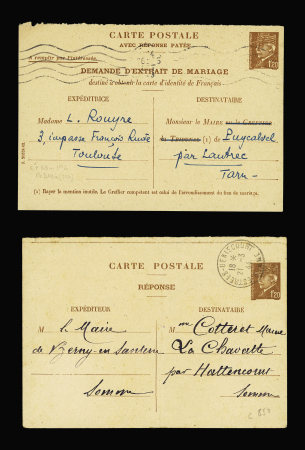 CARTE POSTALE
AVEC RÉPONSE PAYÉE
A remplir par l'intéressée.
1,20
DEMANDE D'EXTRAIT DE MARIAGE
destiné à obtenir la carte d'identité de Français
EXPÉDITRICE
DESTINATAIRE
Madame L. Rouyre
3, impasse François
Toulouse
Monsieur le MAIRE
(1) de Puycalvel
par Lautrec
Tarn
(1) Rayer la mention inutile. Le Greffier compétent est celui de l'arrondissement du lieu de mariage.
CARTE POSTALE
RÉPONSE
1,20
EXPÉDITEUR
DESTINATAIRE
M le Maire
de Berny-en Santerre
Somme
M me Cotteret
La Chavatte
par Hattencourt
Somme